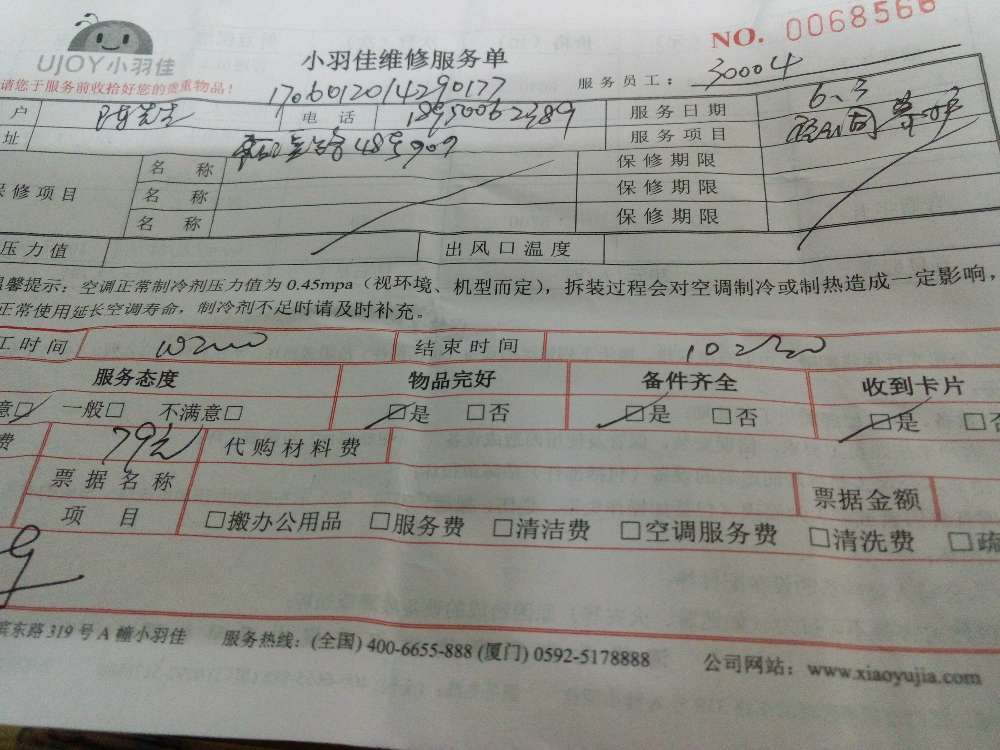 UJOY小羽佳
小羽佳维修服务单
NO. 0068566
请您于服务前收拾好您的贵重物品!
1706012014290177
服务员工: 30004
户 陈先生 电话 18950062389 服务日期 6.3
址 服务项目
保修项目 名称 保修期限
名称 保修期限
名称 保修期限
压力值 出风口温度
温馨提示: 空调正常制冷剂压力值为 0.45mpa (视环境、机型而定), 拆装过程会对空调制冷或制热造成一定影响,
正常使用延长空调寿命, 制冷剂不足时请及时补充。
工时间 结束时间
服务态度 物品完好 备件齐全 收到卡片
意□ 一般□ 不满意□ □是 □否 □是 □否 □是 □否
费 79元 代购材料费
票据名称 票据金额
项目 □搬办公用品 □服务费 □清洁费 □空调服务费 □清洗费 □疏
滨东路 319 号 A 幢小羽佳 服务热线: (全国) 400-6655-888 (厦门) 0592-5178888 公司网站: www.xiaoyujia.com